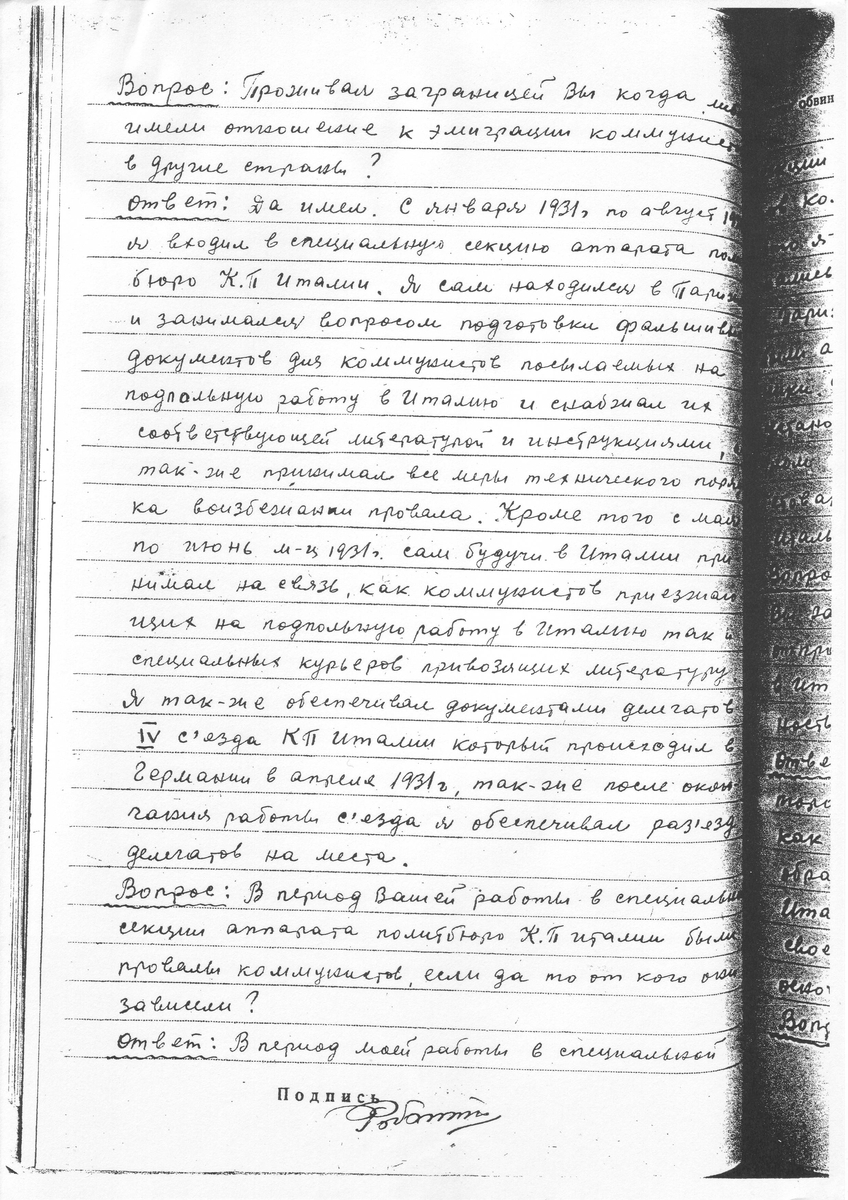 Вопрос: Проживая заграницей Вы когда
имели отношение к эмиграции коммунист
в другие страны?
Ответ: Да имел. С января 1931г по август 19
я входил в специальную секцию аппарата пол
бюро К.П Италии. Я сам находился в Пари
и занимался вопросом подготовки фальшив
документов для коммунистов посылаемых на
подпольную работу в Италию и снабжал их
соответствующей литературой и инструкциями,
так-же принимал все меры технического поря
ка воизбежании провала. Кроме того с мая
по июнь м-ц 1931г. сам будучи в Италии при-
нимал на связь, как коммунистов приезжаю
щих на подпольную работу в Италию так и
специальных курьеров привозящих литературу.
Я так-же обеспечивал документами делегатов
IV с'езда КП Италии который происходил в
Германии в апреля 1931г, так-же после окон-
чания работы с'езда я обеспечивал раз'езд
делегатов на места.
Вопрос: В период Вашей работы в специальн
секции аппарата политбюро К.П Италии были
провалы коммунистов, если да то от кого они
зависели?
Ответ: В период моей работы в специальной
Подпись
обвин
ции
ко
Вопро
в Ит
ность
Отве
как
обра
Ита
свое
Вопр